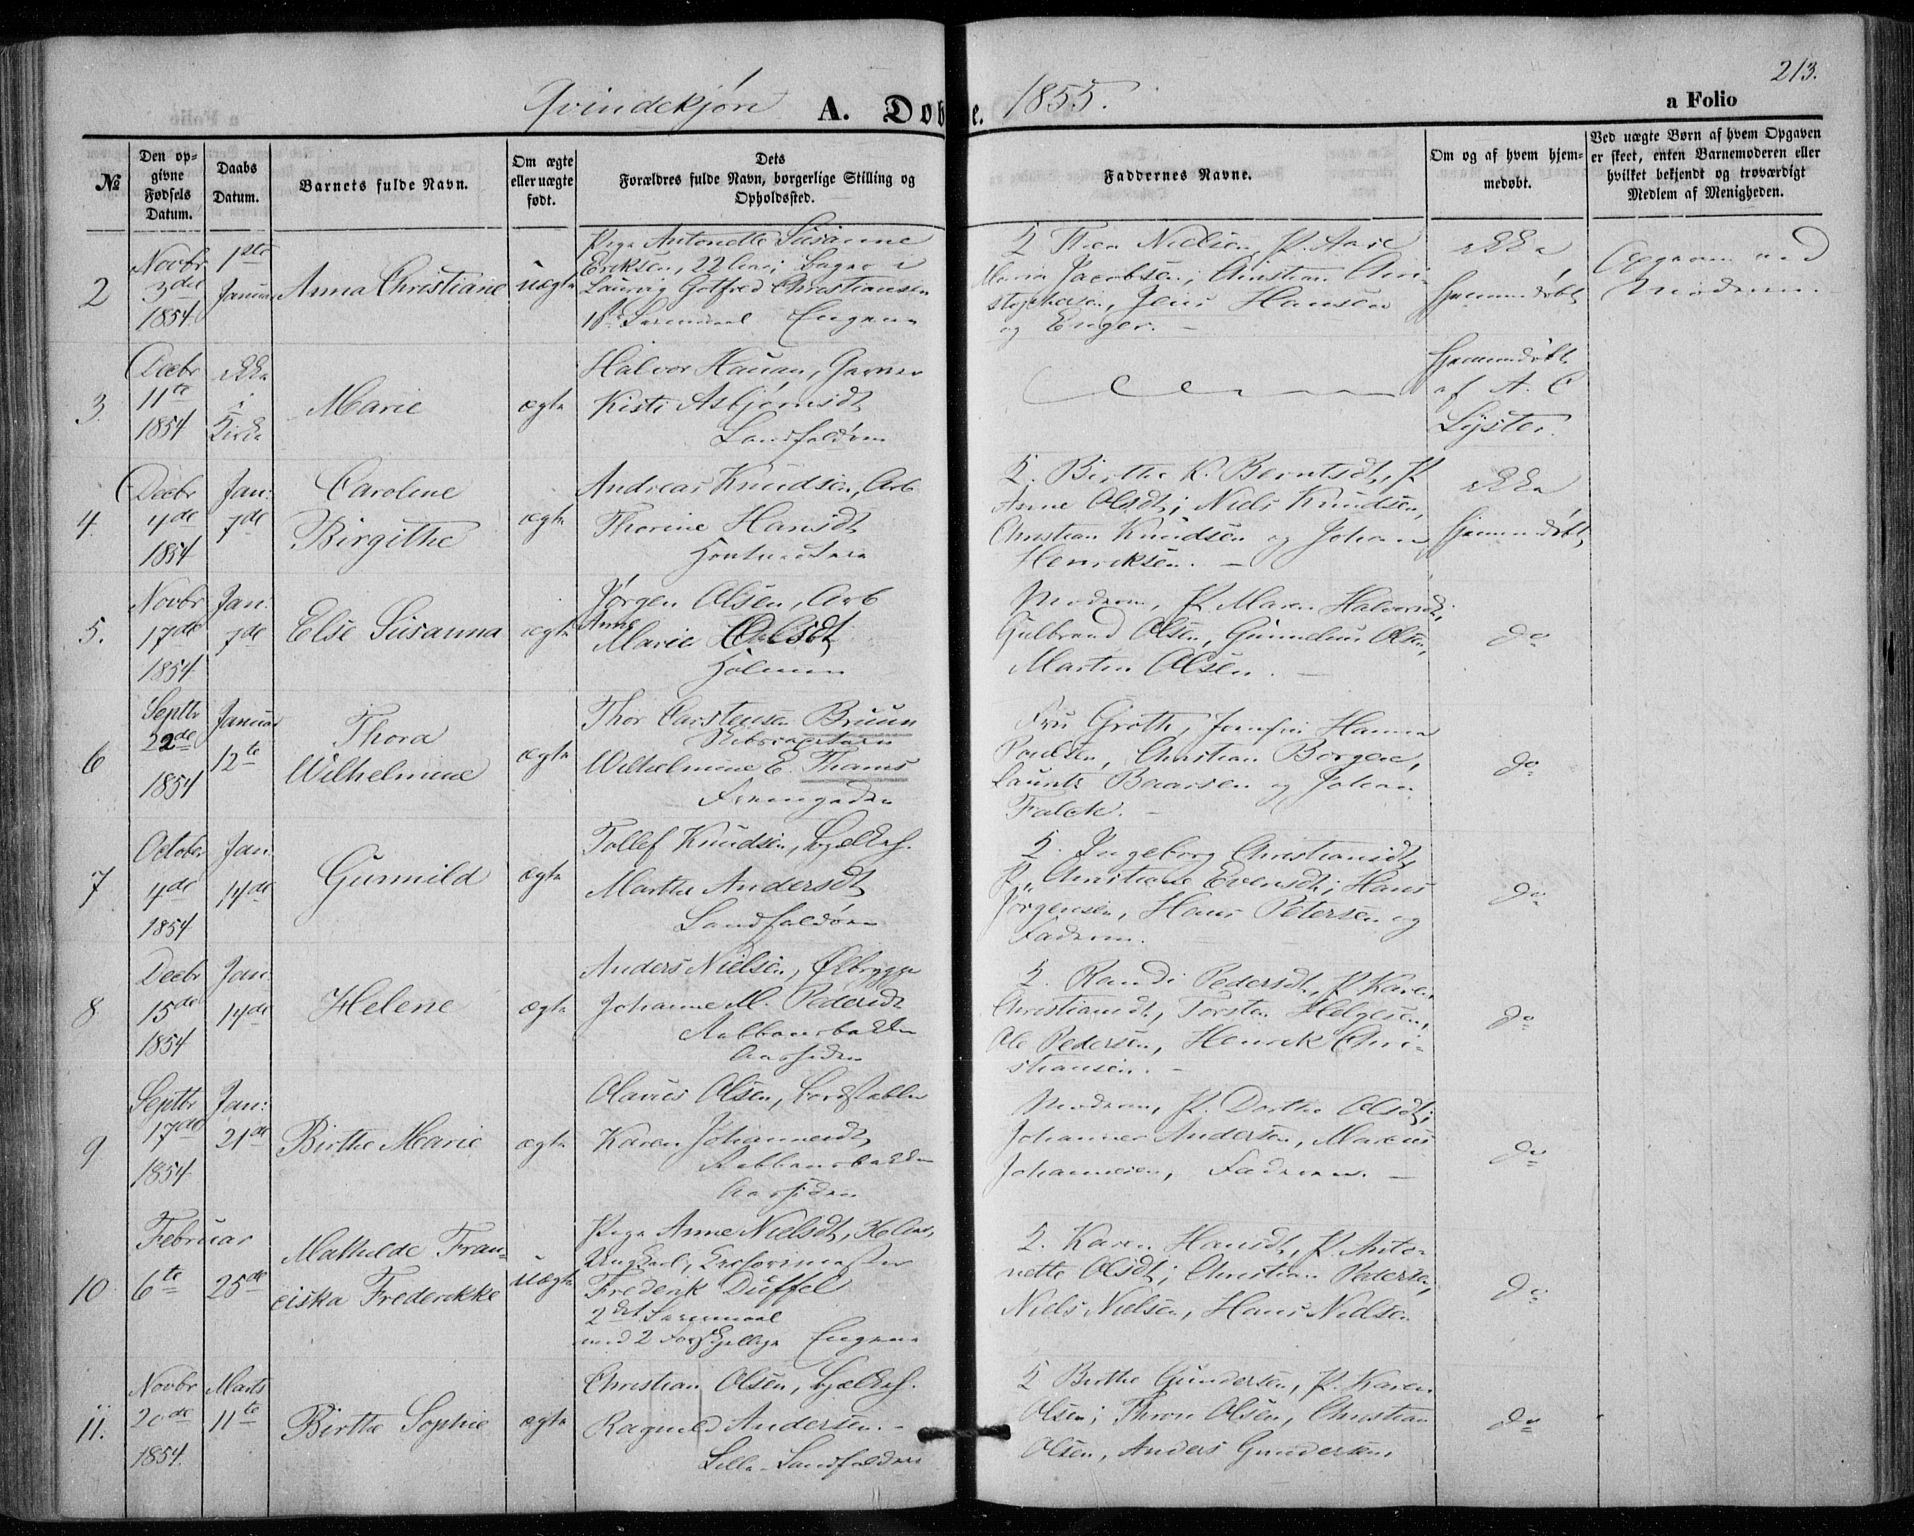 213.
Qvindekjøn A. Døbte. 1855.
a Folio
№
Den opgivne Fødsels Datum.
Daabs Datum.
Barnets fulde Navn.
Om ægte eller uægte født.
Dets Forældres fulde Navn, borgerlige Stilling og Opholdssted.
Faddernes Navne.
Om og af hvem hjemmedøbt.
Ved uægte Børn af hvem Opgaven er skeet, enten Barnemoderen eller hvilket bekjendt og troværdigt Medlem af Menigheden.
2
Novbr 3de 1854.
1ste Januar
Anna Christiane
uægte
Pige Antonette Susanne
Eriksen, 22
Laurvig Gotfred Christiansen
Engene
Nielsen, P. Aase
Maria Jacobsen; Christian Chri-
stophersen, Jens Hansen
og Enger. —
ikke hjemmedøbt
Opgaven ved Moderen.
3.
Decbr 11te 1854
ikke i Kirke
Marie
ægte
Halvor Hauan, Garver
Kisti Asbjørnsdt
Landfaldøen
Hjemmedøbt af A. C. Lyster.
4.
Decbr 4de 1854
Jan: 7de
Caroline Birgithe
ægte
Andreas Knudsen, Arb
Thorine Hansdt
K. Birthe K. Berntsdt, P.
Anne Olsdt; Niels Knudsen,
Christian Knudsen og Johan
Henriksen. —
ikke hjemmedøbt
5.
Novbr 17de 1854
Jan: 7de
Else Susanna
ægte
Jørgen Olsen, Arb
Anne
Marie Olsdt
Holmen
Moderen, P. Maren Halvorsdt,
Gulbrand Olsen, Gunnelius Olsen,
Martin Olsen. —
do
6
Septbr 22de 1854
Januar 12te
Thora Wilhelmine
ægte
Thor Carstensen Bruun
Wilhelmine E. Thams
Fru Groth, Jomfru Hanna
Poulsen, Christian Borgen,
Launts og Johan
Falck. —
do
7
October 4de 1854
Jan 14de
Gunnild
ægte
Tollef Knudsen, Bjelkh.
Marthe Andersdt
Landfaldøen
K. Ingeborg Christiansdt,
P. Christiane Evensdt; Hans
Jørgensen, Hans Petersen og
Faderen.
do
8
Decbr 15de 1854
Jan: 14de
Helene
ægte
Anders Nielsen, Ølbrygge
Johanne M. Pedersdt
Aassiden
K. Randi Pedersdt, P. Karen
Christiansdt, Torsten Helgesen,
Ole Pedersen, Henrik Chri-
stiansen. —
do
9
Septbr 17de 1854
Jan: 21de
Birthe Marie
ægte
Olaves Olsen, Bordstabler
Karen Johannesdt,
Aassiden
Moderen, P. Dorthe Olsdt;
Johannes Andersen, Marius
Johannesen, Faderen. —
do
10
Februar 6te
25de
Mathilde Fran-
ciska Frederikke
uægte
Pige Anne Nielsdt,
Ungkarl,
Frederik Düffel
2det Leiermaal
med 2 Forskjellige Engene
K. Karen Hansdt, P. Anto-
nette Olsdt; Christian Pedersen,
Niels Nielsen, Hans Nielsen
do
11.
Novbr 20de 1854.
Marts 11te
Birthe Sophie
ægte
Christian Olsen, Bjelkh.
Ragnild Andersen. —
Lille Landfaldøen
K. Birthe Gundersen, P. Karen
Olsen; Thron Olsen, Christian
Olsen, Anders Gundersen.
do